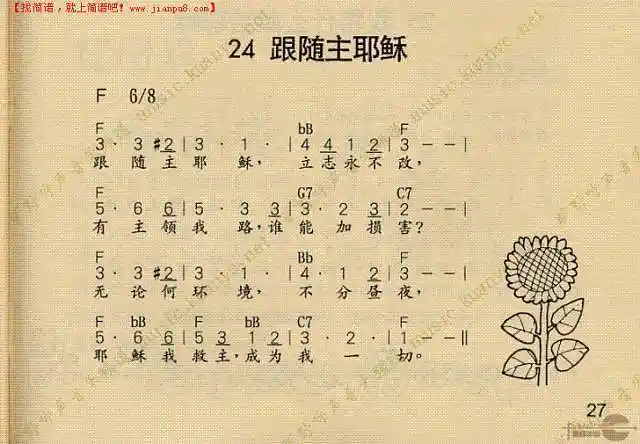 【找简谱，就上简谱吧！www.jianpu8.com】
24 跟随主耶稣
F 6/8
F bB F
3· 3 #2 | 3 · 1 · | 4 4 1 2 | 3 - - |
跟 随 主 耶 稣， 立 志 永 不 改，
F G7 C7
5· 6 6 | 5 · 3 3 | 3 · 2 3 | 2 - - |
有 主 领 我 路，谁 能 加 损 害？
F Bb F
3· 3· #2 | 3 · 1 · | 4 · 1 2 | 3 - - |
无 论 何 环 境， 不 分 昼 夜，
F bB F bB C7 F
5· 6 6 | 5 3 1 2 | 3 · 2 · | 1 - - ‖
耶 稣 我 救 主，成 为 我 一 切。
27